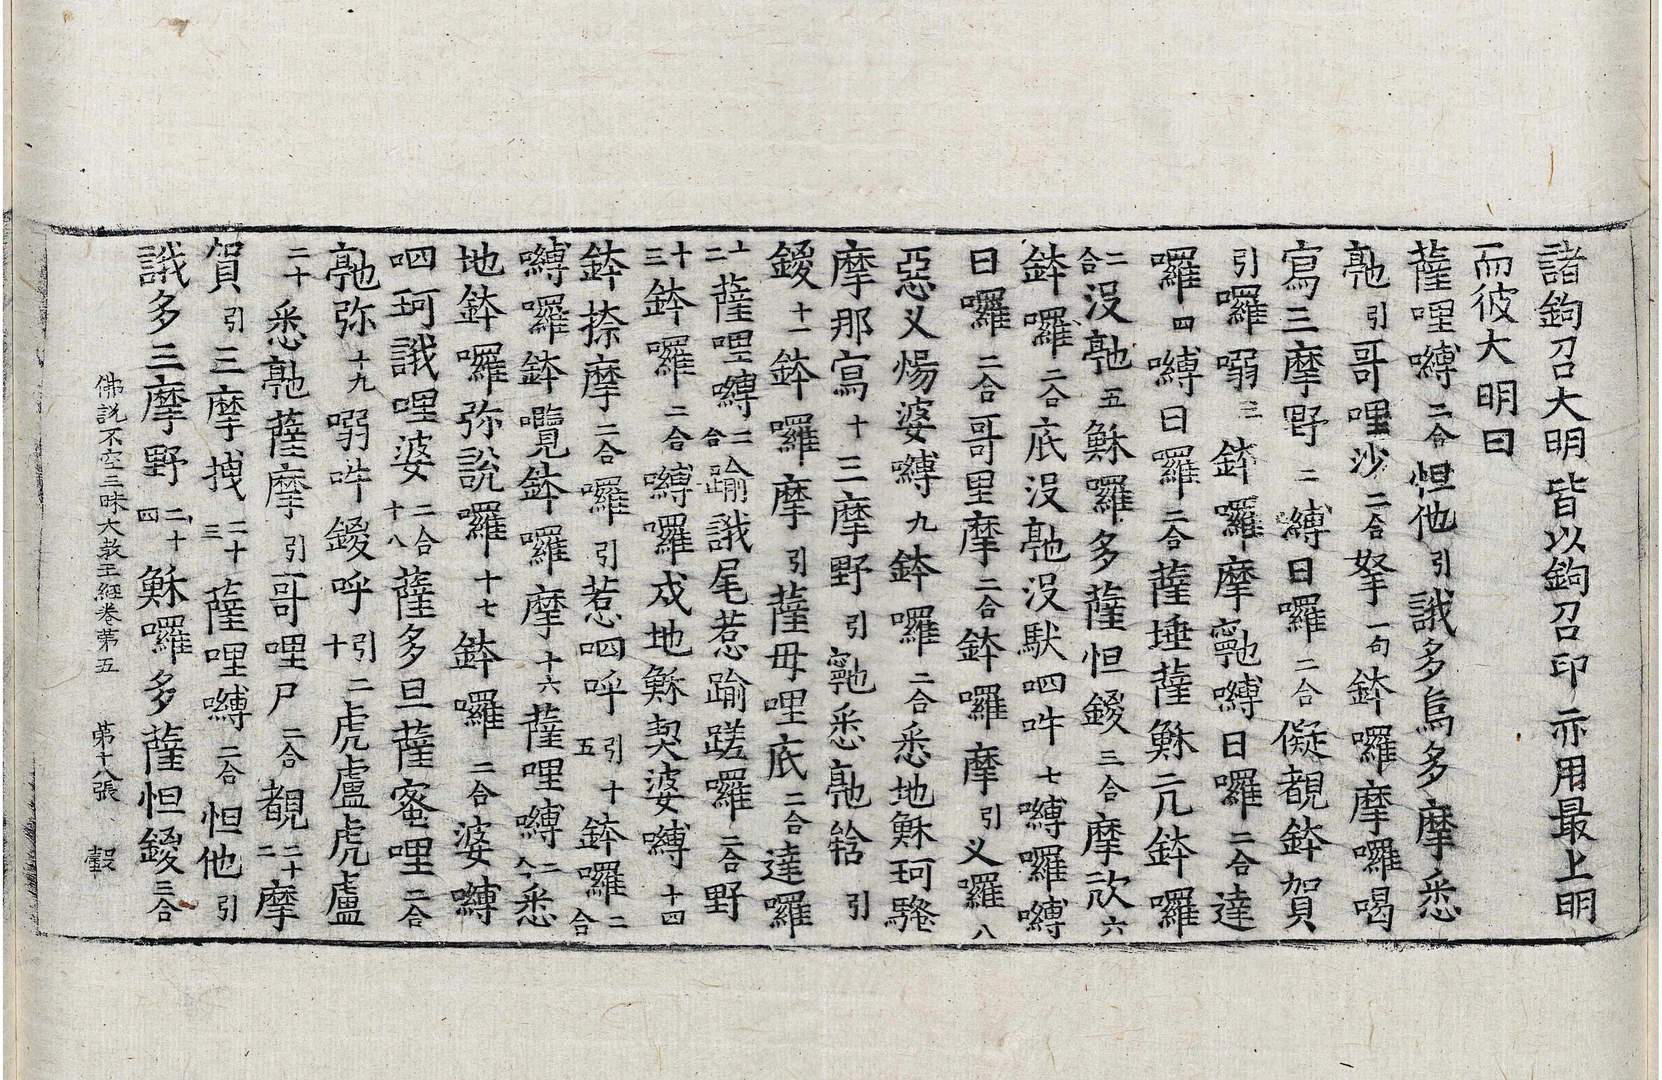 諸鉤召大明皆以鉤召印亦用最上明
而彼大明曰
薩哩嚩二合怛他引誐多烏多摩悉
亸引哥哩沙二合拏一句鉢囉摩囉喝
寫三摩野二嚩日囉二合儗覩鉢賀
引囉嗍三鉢囉摩𩕳嚩日囉二合達
囉四嚩日囉二合薩埵薩穌亢鉢囉
二合沒亸五穌囉多薩怛鍐三合摩欬六
鉢囉二合底沒亸沒馱呬吽七嚩囉嚩
日囉二合哥里摩二合鉢囉摩引乂囉八
惡乂煬婆嚩九鉢囉二合悉地穌珂騷
摩那寫十三摩野引悉亸引
鍐十一鉢囉摩引薩母哩底二合達囉
十二薩哩嚩二合踰誐尾惹踰蹉囉二合野
十三鉢囉二合嚩囉戍地穌契婆嚩十四
鉢捺摩二合囉引惹呬呼引十五鉢囉二合
嚩囉鉢囉摩十六薩哩嚩二合悉
地鉢囉弥說囉十七鉢囉二合婆嚩
呬珂誐哩婆二合十八薩多旦薩蜜哩二合
亸弥十九嗍吽鍐呼引二十虎盧虎盧
二十悉亸薩摩引哥哩尸二合覩二十二摩
賀引三摩拽二十三薩哩嚩二合怛他引
誐多三摩野二十四穌囉多薩怛鍐三合
佛說不空三昧大教王經卷第五　第十八張　縠